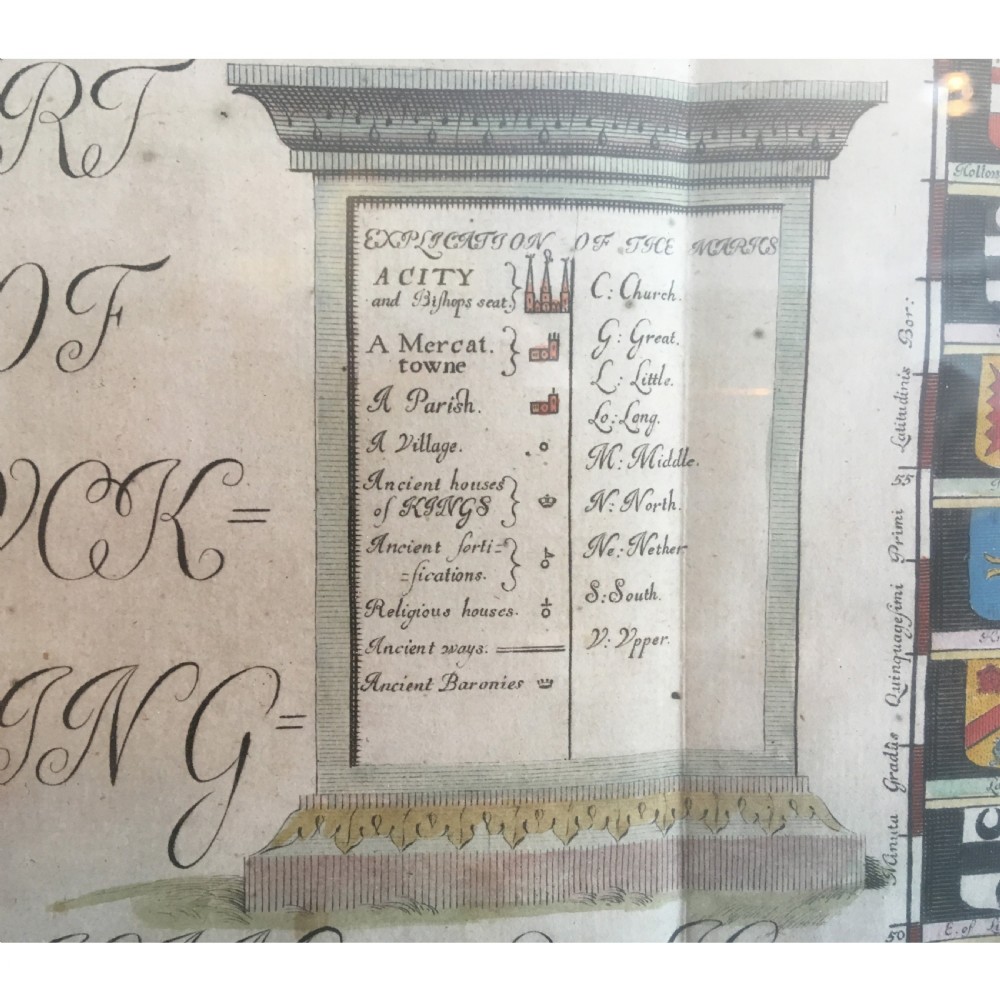 RT
OF
CK=
ING=
EXPLICATION OF THE MARKS
A CITY
and Bishops seat.
A Mercat.
towne
A Parish.
A Village.
Ancient houses
of KINGS
Ancient forti=
=fications.
Religious houses.
Ancient ways.
Ancient Baronies
C: Church.
G: Great.
L: Little.
Lo: Long.
M: Middle.
N: North.
Ne: Nether
S: South.
V: Vpper.
Minuta Gradûs Quinquagesimi Primi Latitudinis Bor:
55
50
E. of